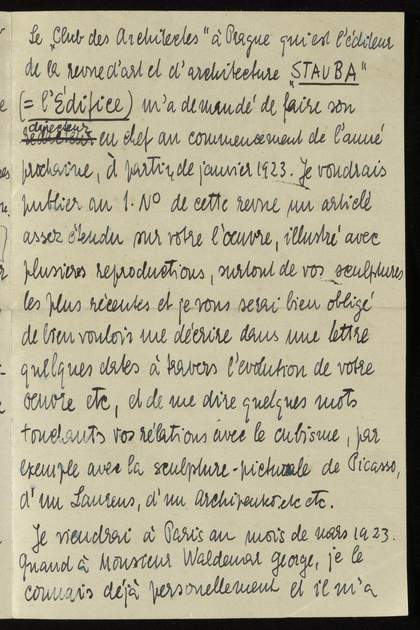 Le „Club des Architectes" à Prague qui est l'éditeur
de la revue d'art et d'architecture "STAVBA"
(= l'Édifice) m'a demandé de faire son
directeur en chef au commencement de l'anné
prochaine, à partir de janvier 1923. Je voudrais
publier au 1. No de cette revue un articlé
assez étendu sur votre l'oeuvre, illustré avec
plusieres reproductions, surtout de vos sculptures
les plus récentes et je vous serai bien obligé
de bien vouloir me décrire dans une lettre
quelques dates à travers l'evolution de votre
oeuvre etc, et de me dire quelques mots
touchants vos rélations avec le cubisme, par
exemple avec la sculpture-picturale de Picasso,
d'un Laurens, d'un Archipenko etc etc.
Je viendrai à Paris au mois de mars 1923.
Quand à Monsieur Waldemar George, je le
connais déjà personellement et il m'a